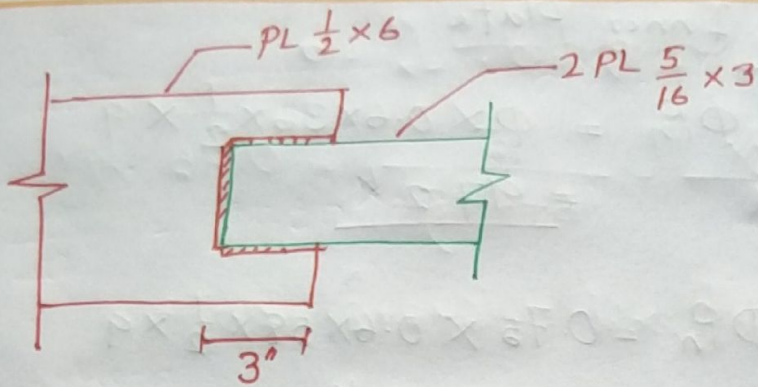 PL 1/2 × 6
2 PL 5/16 × 3
3"